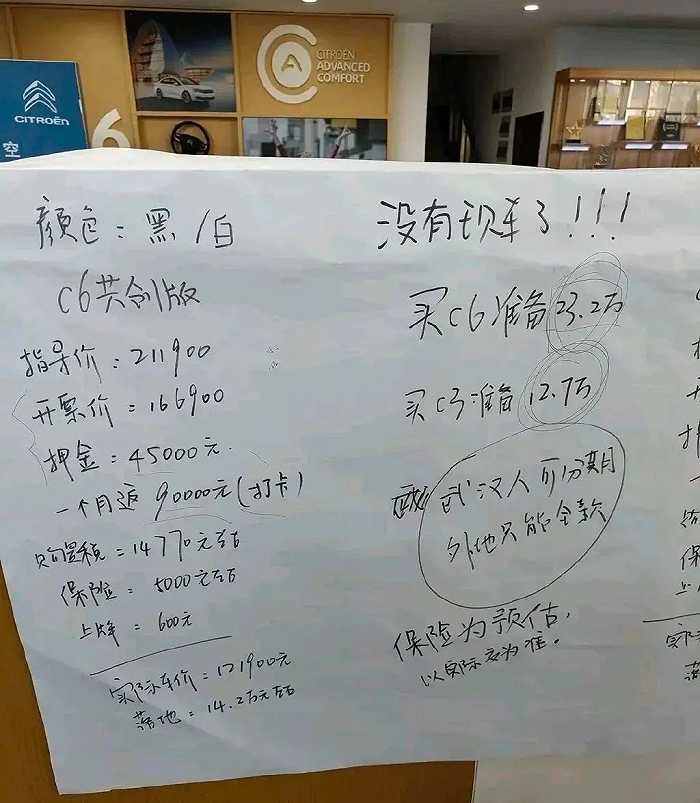 CITROËN
ADVANCED
COMFORT
CITROËN
空
6
颜色：黑/白
C6共创版
指导价：211900
开票价：166900
押金：45000元
一个月返90000元(打卡)
购置税=14770元左右
保险：5000元左右
上牌：600元
实际车价：121900元
落地：14.2万元左右
没有现车了!!!
买C6准备23.2万
买C3准备12.7万
武汉人可分期
外地只能全款
保险为预估,
以实际交为准.